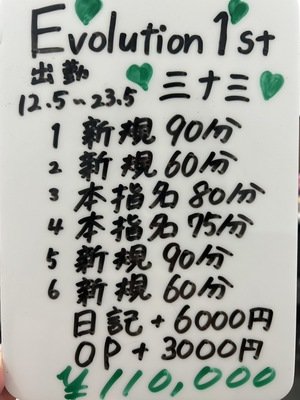 Evolution 1st
出勤
12.5~23.5
三十三
1 新規 90分
2 新規 60分
3 本指名 80分
4 本指名 75分
5 新規 90分
6 新規 60分
日記+6000円
OP+3000円
¥110,000